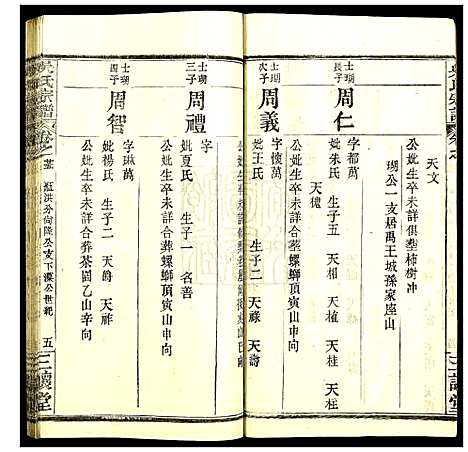 天文
公妣生卒未詳俱塟柿樹冲
瑚公一支居禹王城孫家座山
士瑚長子
周仁
字都萬
妣朱氏 生子五 天相 天植 天桂 天柱
天樁
公妣生卒未詳合塟螺螄頂寅山申向
士瑚次子
周義
字懷萬
妣王氏 生子二 天祿 天壽
公妣生卒未詳
士瑚三子
周禮
字
妣夏氏 生子一 名善
公妣生卒未詳合葬螺螄頂寅山申向
士瑚四子
周智
字琳萬
妣楊氏 生子二 天爵 天祥
公妣生卒未詳合葬茶園乙山辛向
吳氏宗譜
洪分尙隆公支下漢公世紀
五
三讓堂